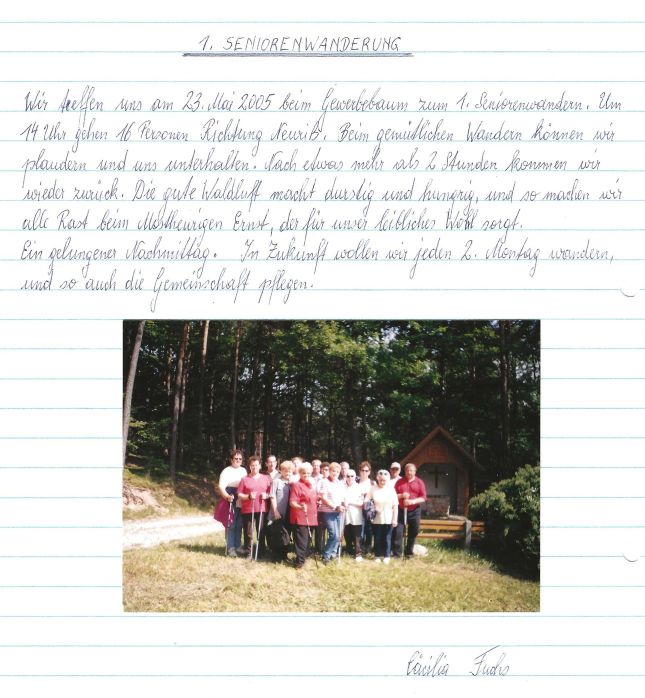 1. SENIORENWANDERUNG
Wir treffen uns am 23. Mai 2005 beim Gewerbebaum zum 1. Seniorenwandern. Um
14 Uhr gehen 16 Personen Richtung Neuriß. Beim gemütlichen Wandern können wir
plaudern und uns unterhalten. Nach etwas mehr als 2 Stunden kommen wir
wieder zurück. Die gute Waldluft macht durstig und hungrig, und so machen wir
alle Rast beim Mostheurigen Ernst, der für unser leibliches Wohl sorgt.
Ein gelungener Nachmittag. In Zukunft wollen wir jeden 2. Montag wandern,
und so auch die Gemeinschaft pflegen.
Cäcilia Fuchs